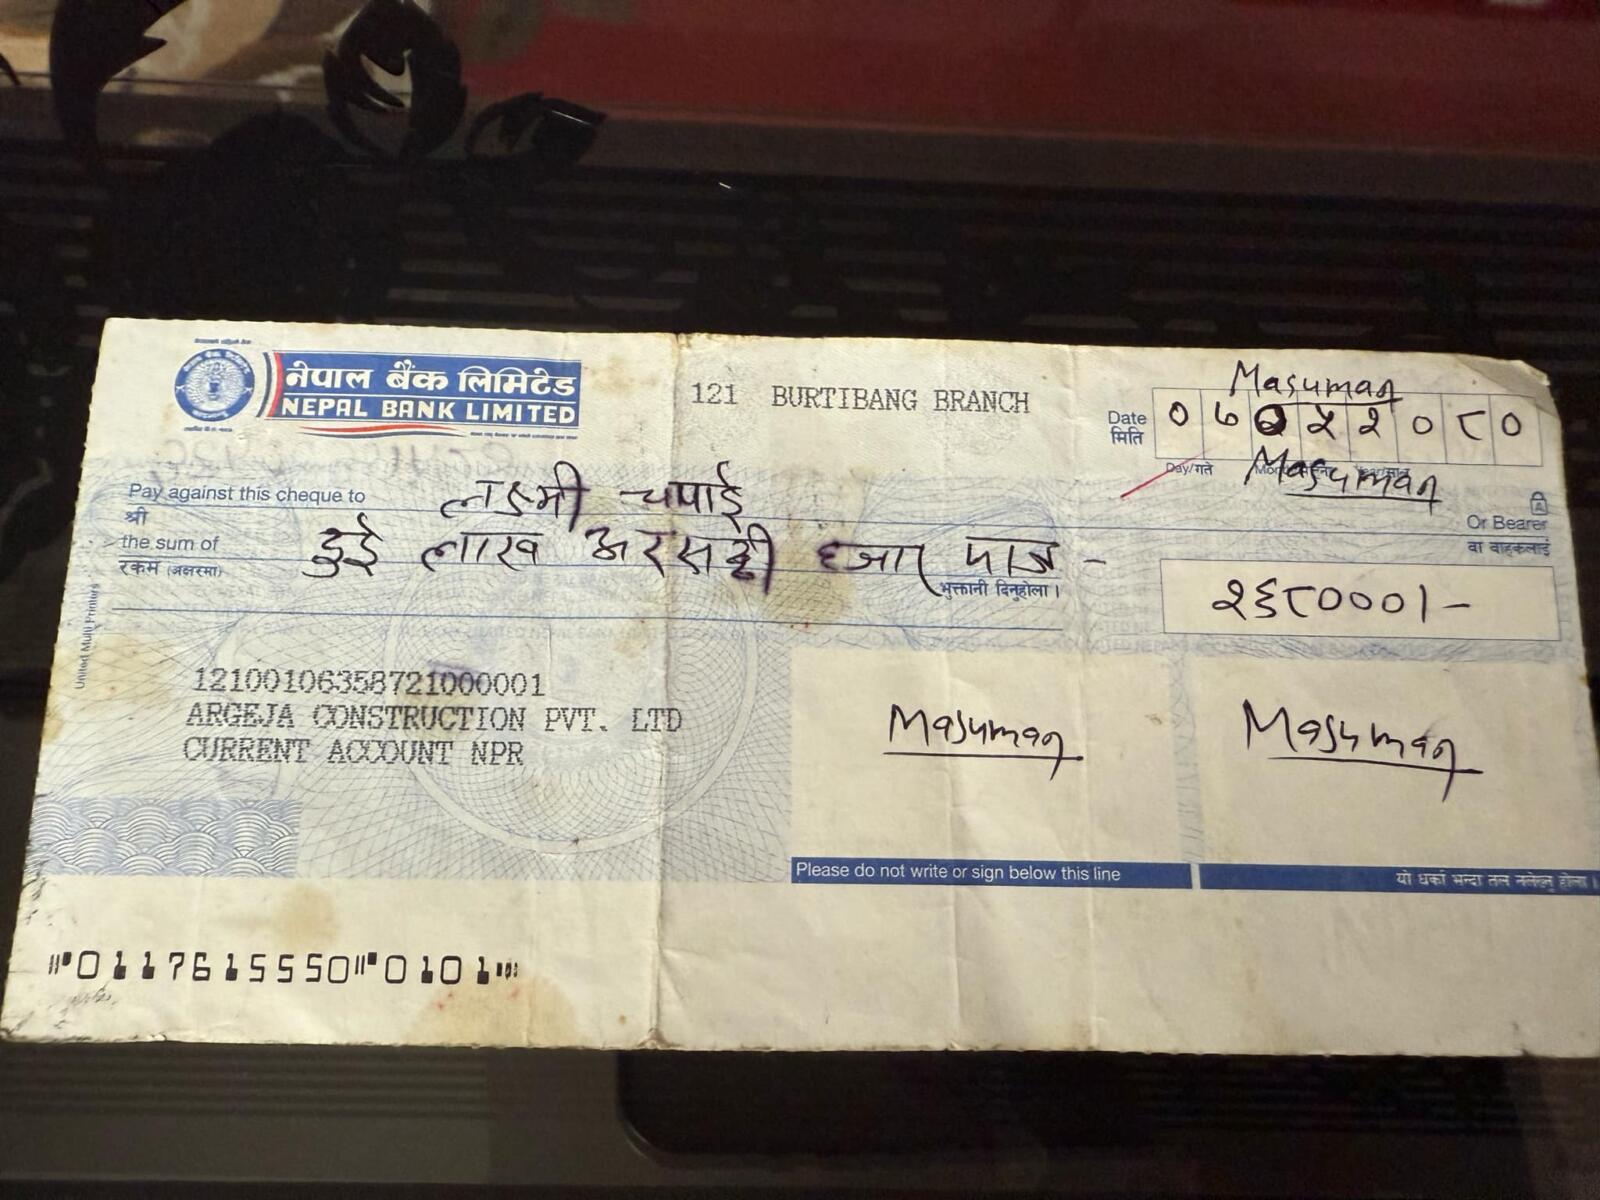 नेपाल बैंक लिमिटेड
NEPAL BANK LIMITED
121 BURTIBANG BRANCH
Masuman
Date
मिति
०७ ५२०८०
Day/गते
Masuman
Pay against this cheque to लक्ष्मी चापाई
श्री
Or Bearer
वा वाहकलाई
the sum of दुई लाख अरसठ्ठी हजार मात्र -
रकम (अक्षरमा)
भुक्तानी दिनुहोला ।
२६८०००।-
United Multi Printers
12100106358721000001
ARGEJA CONSTRUCTION PVT. LTD
CURRENT ACCOUNT NPR
Masuman
Masuman
Please do not write or sign below this line
यो धर्का भन्दा तल नलेख्नु होला ।
⑈0117615550⑈0101⑆